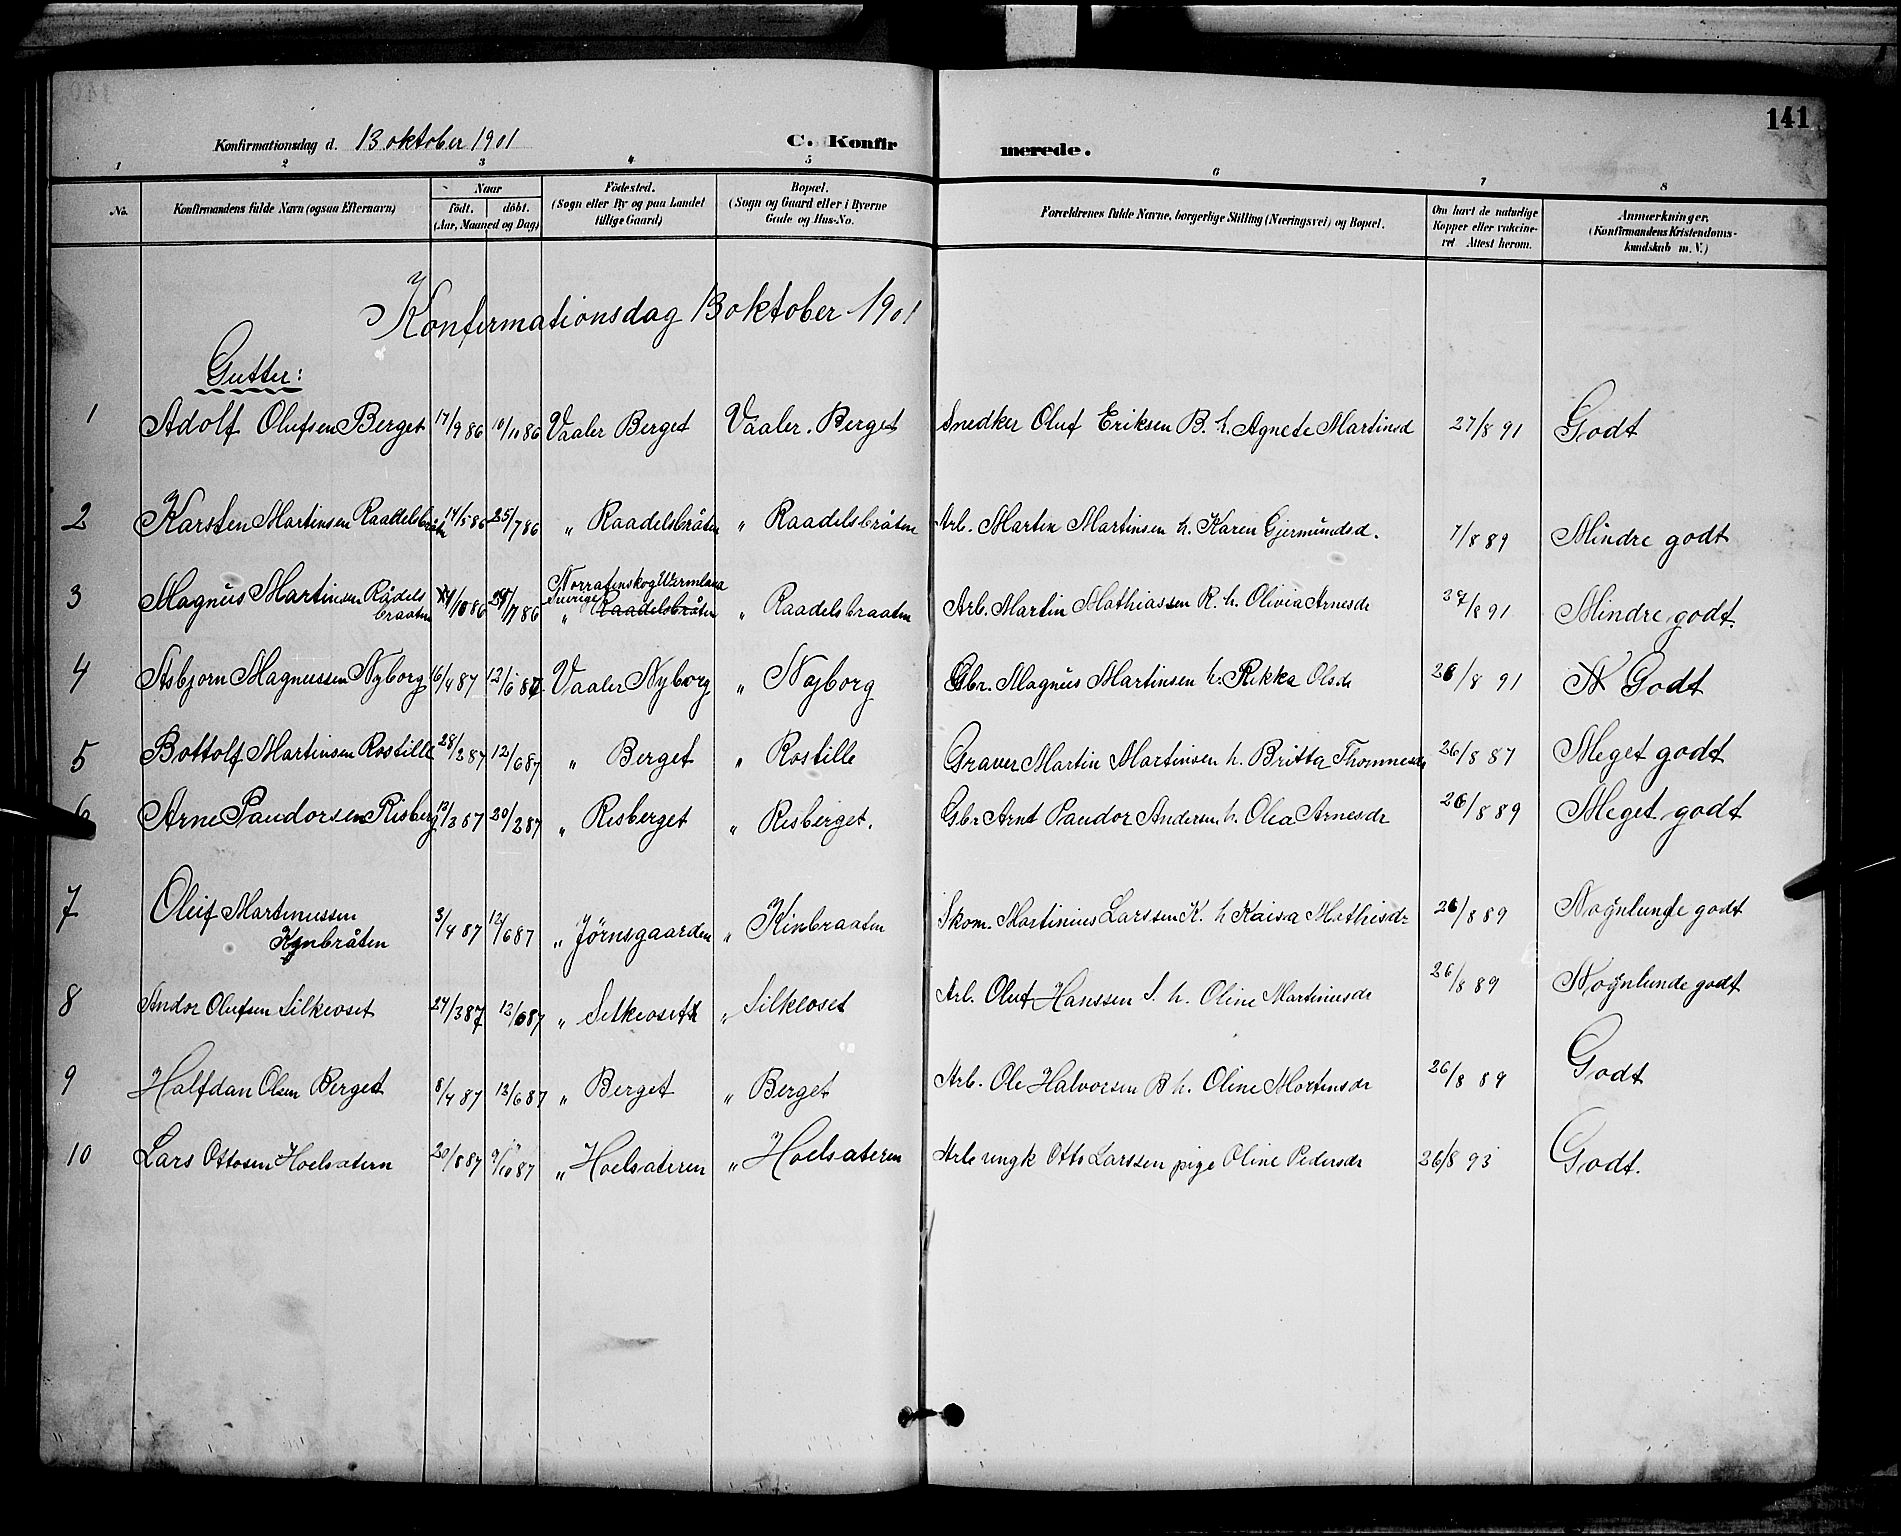 141
Konfirmationsdag d. 13 oktober 1901 C. Konfir merede.
1 2 3 4 5 6 7 8
No. Konfirmandens fulde Navn (ogsaa Efternavn) Naar født. døbt. (Aar, Maaned og Dag) Födested. (Sogn eller By og paa Landet tillige Gaard) Bopæl. (Sogn og Gaard eller i Byerne Gade og Hus-No. Forældrenes fulde Navne, borgerlige Stilling (Næringsvei) og Bopæl. Om havt de naturlige Kopper eller vakcineret Attest herom. Anmærkninger. (Konfirmandens Kristendomskundskab m. V.)
Konfirmationsdag 13 oktober 1901
Gutter:
1 Adolf Olufsen Berget 17/9 86 10/10 86 Vaaler Berget Vaaler. Berget Snedker Oluf Eriksen B. h. Agnete Martinsd 27/8 91 Godt
2 Karsten Martinsen Raadelsbråtn 14/5 86 25/7 86 „ Raadelsbråten „ Raadelsbråten Arb. Martin Martinsen h. Karen Gjermundsd. 7/8 89 Mindre godt
3 Magnus Martinsen Rådelsbraaten 86 86 Sverige „ Raadelsbråten „ Raadelsbraaten Arb. Martin Mathiassen R. h. Olivia Arnesdr 27/8 91 Mindre godt.
4 Asbjorn Magnussen Nyborg 16/4 87 12/6 87 Vaaler Nyborg „ Nyborg Gbr. Magnus Martinsen h. Rikka Olsdr 26/8 91 N Godt
5 Bottolf Martinsen Rostille 28/2 87 12/6 87 „ Berget „ Rostille Graver Martin Martinsen h. Britta Thommesdr 26/8 87 Meget godt
6 Arne Pandorsen Risberg 87 20/2 87 „ Risberget „ Risberget. Gbr Arnt Pandor Andersen h. Olea Arnesdr 26/8 89 Meget godt
7 Oluf Martinussen Kynbråten 3/4 87 12/6 87 „ Jørnsgaarden „ Kinbraaten Skom. Martinius Larssen K. h Kaisa Mathisdr 26/8 89 Nognlunde godt
8 Andor Olufsen Silkeoset 24/3 87 12/6 87 „ Silkeoset „ Silkeoset Arb. Oluf Hanssen S. h. Oline Martinusdr 26/8 89 Nognlunde godt
9 Halfdan Olsen Berget 8/4 87 12/6 87 „ Berget „ Berget Arb. Ole Halvorsen B h. Oline Martinsdr 26/8 89 Godt
10 Lars Ottosen Hoelsatern 20/8 87 9/10 87 „ Hoelsateren „ Hoelsateren Arb ungk Otto Larssen pige Oline Pedersdr 26/8 93 Godt.